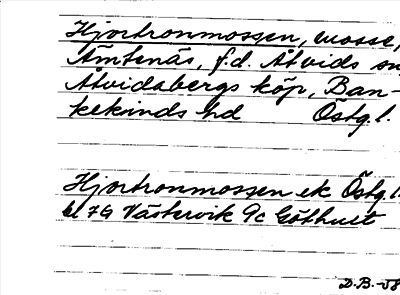 Hjortronmossen, mosse,
Åmtenäs, f.d. Åtvids sn
Åtvidabergs köp, Ban-
kekinds hd Östg.l.
Hjortronmossen ek Östg.l.
bl 74 Västervik 9c Göthult
D.B.-58